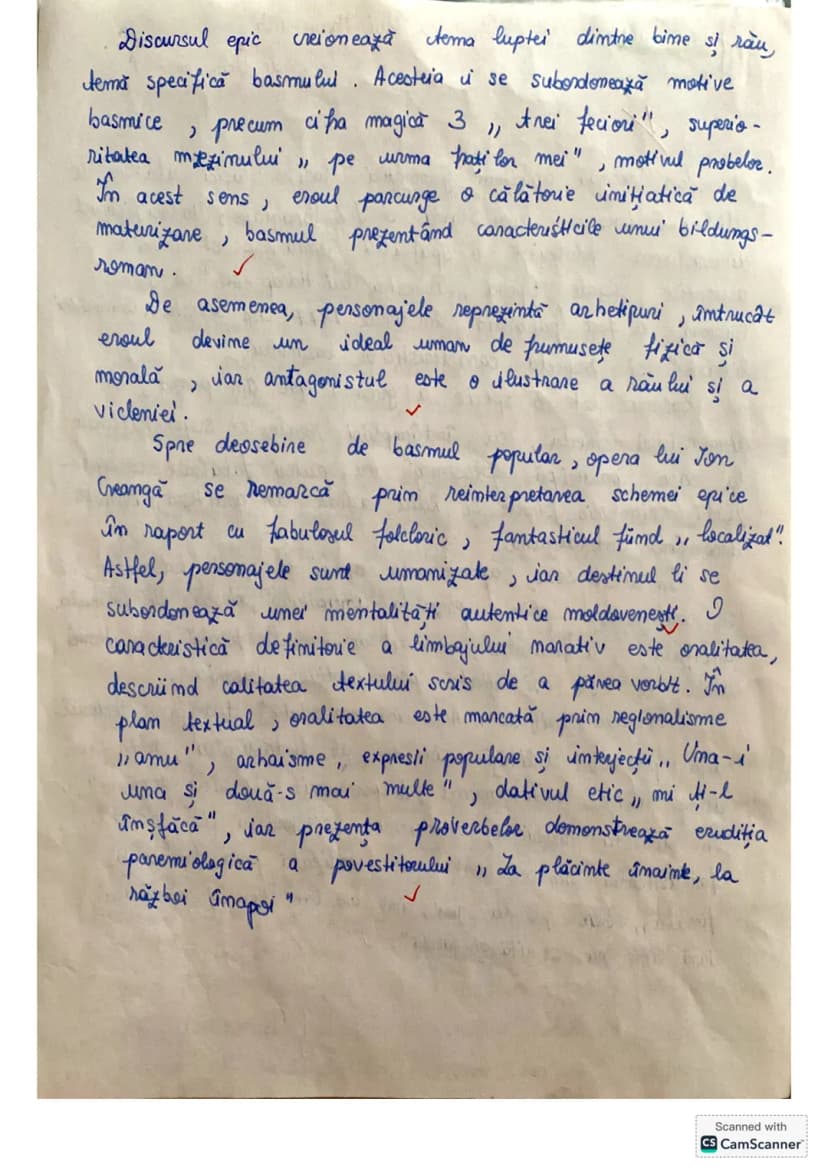 Discursul epic creionează tema luptei dintre bine și rău,
temă specifică basmului. Acesteia i se subordonează motive
basmice, precum cifra magică 3 „trei feciori", superio-
ritatea mezinului „pe urma fraților mei", motivul probelor.
În acest sens, eroul parcurge o călătorie inițiatică de
maturizare, basmul prezentând caracteristicile unui bildungs-
roman.
De asemenea, personajele reprezintă arhetipuri, întrucât
eroul devine un ideal uman de frumusețe fizică și
morală, iar antagonistul este o ilustrare a răului și a
vicleniei.
Spre deosebire de basmul popular, opera lui Ion
Creangă se remarcă prin reinterpretarea schemei epice
în raport cu fabulosul folcloric, fantasticul fiind „localizat".
Astfel, personajele sunt umanizate, iar destinul li se
subordonează unei mentalități autentice moldovenești. O
caracteristică definitorie a limbajului narativ este oralitatea,
descriind calitatea textului scris de a părea vorbit. În
plan textual, oralitatea este marcată prin regionalisme
„amu", arhaisme, expresii populare și interjecții „Una-i
una și două-s mai multe", dativul etic „mi ți-l
înșfăcă", iar prezența proverbelor demonstrează erudiția
paremiologică a povestitorului „La plăcinte înainte, la
război înapoi"
Scanned with
CS CamScanner